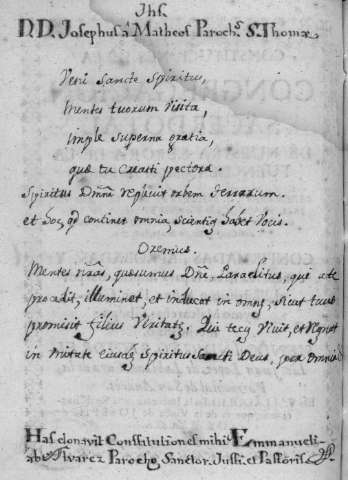 Jhs.
D.D. Josephus á Matheos Paroch.s S. Thomæ
Veni Sancte Spiritus,
Mentes tuorum visita,
imple superna gratia,
quæ tu creasti pectora.
Spiritus Dm̃ni replevit orbem terrarum.
et hoc, qd continet omnia, scientiã habet vocis.
Oremus.
Mentes nrãs, quesumus Dñe, Paraclitus, qui a te
procedit, illuminet, et inducat in omnẽ, sicut tuus
promisit filius veritatẽ. Qui tecũ vivit, et regnat
in unitate eiusdẽ Spiritus Sancti Deus, per omnia
Has donavit Constitutiones mihi Emmanueli
ab Alvarez Parocho Sanctor. Justi, et Pastoris